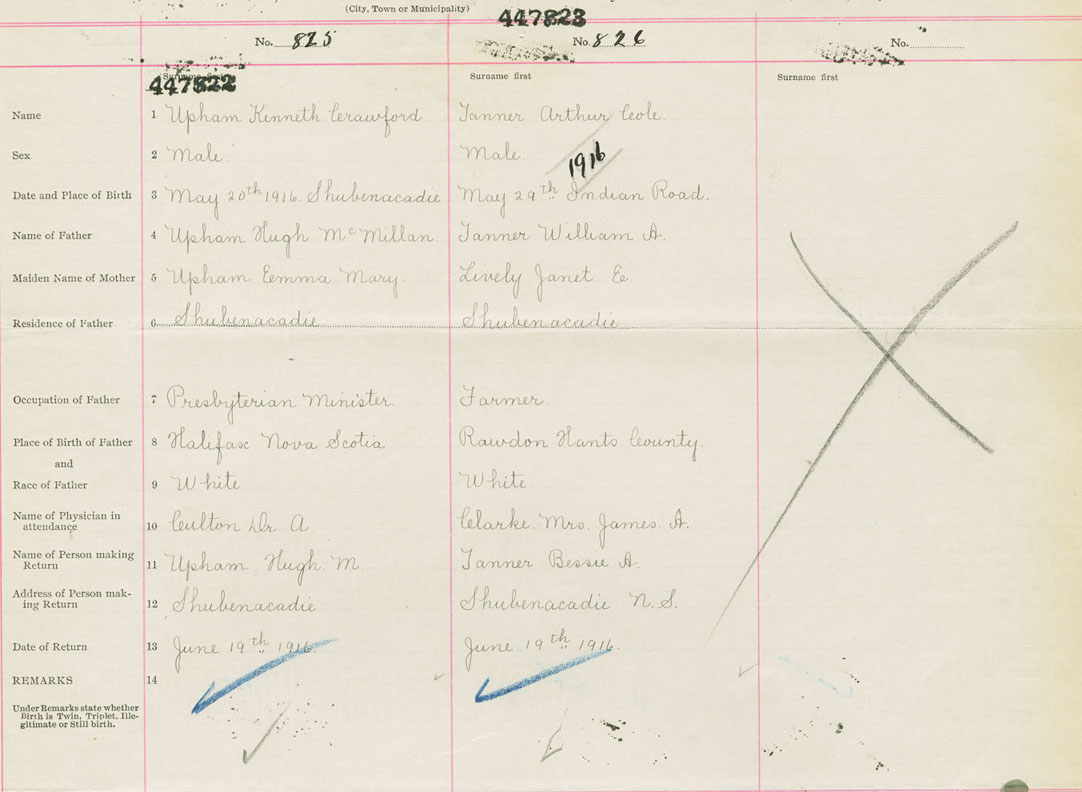 (City, Town or Municipality)
447823
No. 825
No. 826
No.
Surname first
Surname first
Surname first
447822
Name 1 Upham Kenneth Crawford. Tanner Arthur Cole.
Sex 2 Male. Male.
1916
Date and Place of Birth 3 May 20th 1916. Shubenacadie May 29th Indian Road.
Name of Father 4 Upham Hugh McMillan. Tanner William A.
Maiden Name of Mother 5 Upham Emma Mary. Lively Janet E
Residence of Father 6 Shubenacadie Shubenacadie
Occupation of Father 7 Presbyterian Minister. Farmer.
Place of Birth of Father 8 Halifax Nova Scotia. Rawdon Hants County.
and
Race of Father 9 White. White.
Name of Physician in
attendance 10 Dr. A. Clarke. Mrs. James A.
Name of Person making
Return 11 Upham Hugh M. Tanner Bessie A.
Address of Person mak-
ing Return 12 Shubenacadie Shubenacadie N.S.
Date of Return 13 June 19th 1916. June 19th 1916.
REMARKS 14
Under Remarks state whether
Birth is Twin, Triplet, Ille-
gitimate or Still birth.